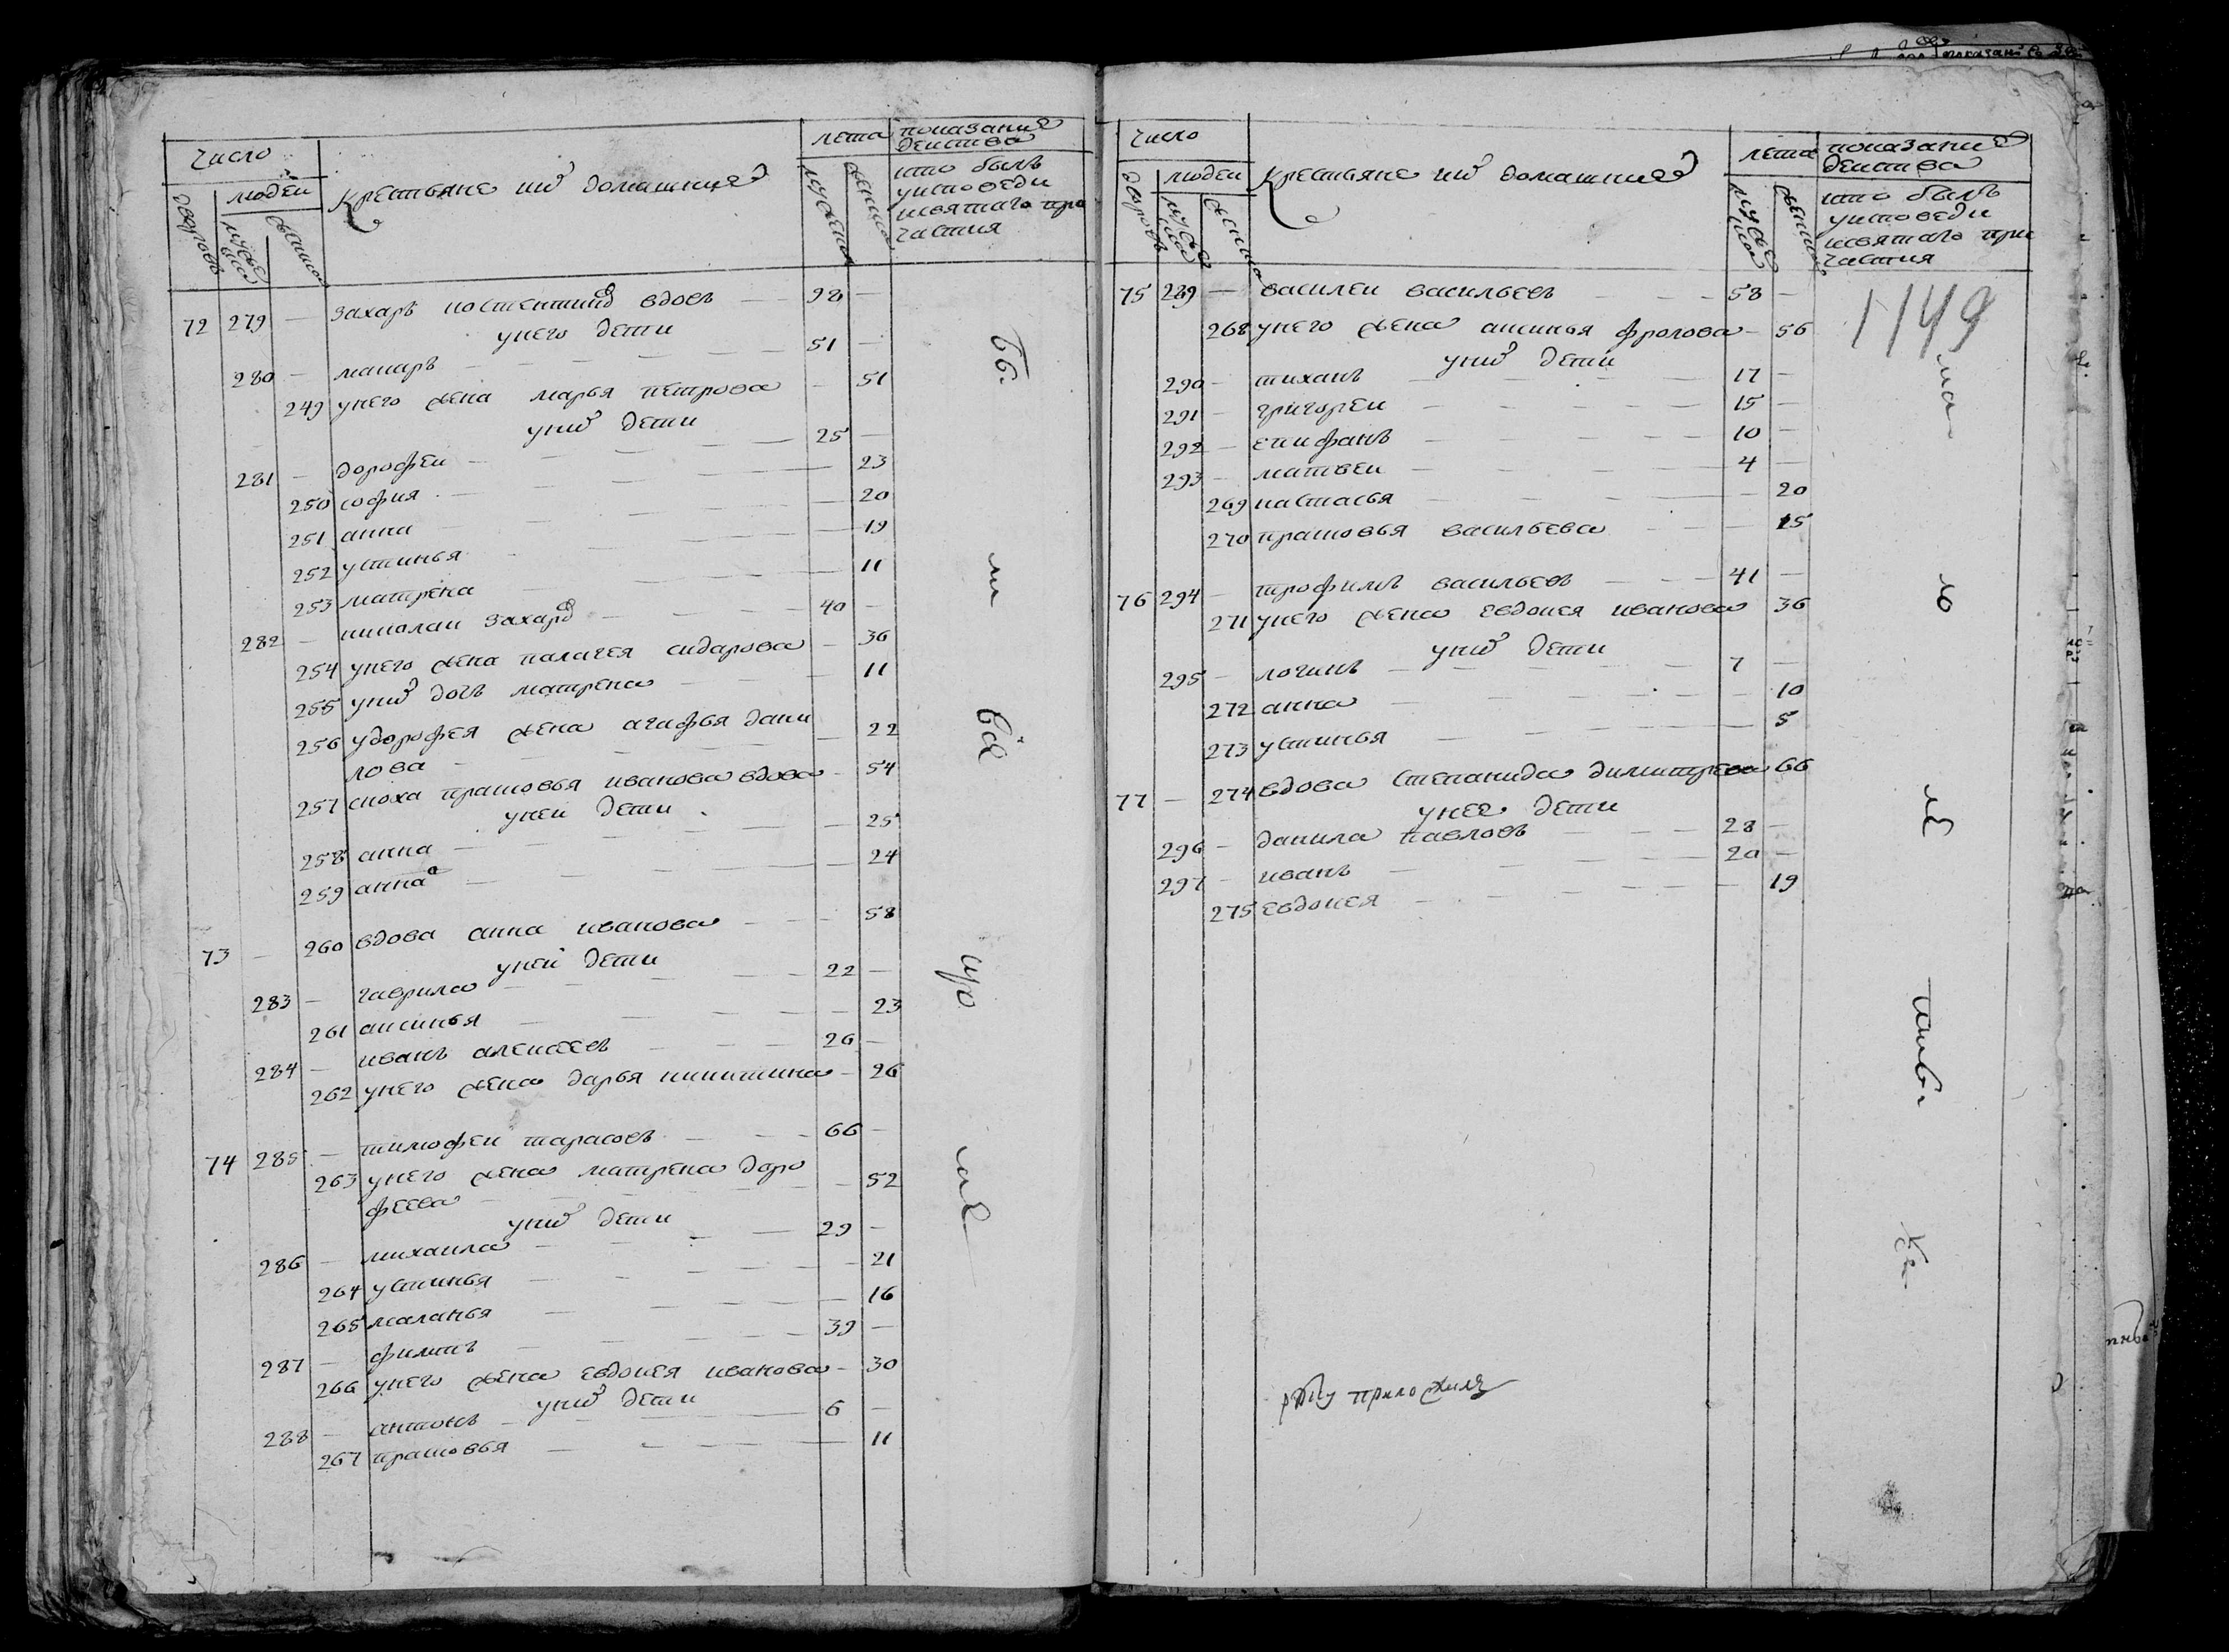 число
людеи
дворовъ
мужеска
женска
Крестьяне ихъ домашние
лета
мужеска
женска
показание
деиства
кто былъ
уисповеди
исвятаго при
частия
72 279 — захаръ костентиновъ вдовъ — 98 —
унего дети
280 — макаръ — 51 —
249 унего жена марья петрова — 51
унихъ дети
281 — дорофеи — 25 —
250 софия — 23
251 анна — 20
252 устинья — 19
253 матрена — 11
282 — николаи захаровъ — 40 —
254 унего жена палагея сидарова — 36
255 унихъ дочь матрена — 11
256 удорофея жена агафья дани
лова — 22
257 сноха прасковья иванова вдова — 54
унеи дети
258 анна — 25
259 анна — 24
73 — 260 вдова анна иванова — 58
унеи дети
283 — гаврила — 22 —
261 аксинья — 23
284 — иванъ алексеевъ — 26 —
262 унего жена дарья никитина — 26
74 285 — тимофеи тарасовъ — 66 —
263 унего жена матрена доро
феева — 52
унихъ дети
286 — михаила — 29 —
264 устинья — 21
265 маланья — 16
287 — филипъ — 39 —
266 унего жена евдокея иванова — 30
унихъ дети
288 — антонъ — 6 —
267 прасковья — 11
число
людеи
дворовъ
мужеска
женска
Крестьяне ихъ домашние
лета
мужеска
женска
показание
деиства
кто былъ
уисповеди
исвятаго при
частия
1149
75 289 — василеи васильевъ — 58 —
268 унего жена аксинья фролова — 56
унихъ дети
290 — тиханъ — 17 —
291 — григореи — 15 —
292 — епифанъ — 10 —
293 — матвеи — 4 —
269 настасья — 20
270 прасковья васильева — 15
76 294 — трофимъ васильевъ — 41 —
271 унего жена евдокея иванова 36
унихъ дети
295 — логинъ — 7 —
272 анна — 10
273 устинья — 5
77 — 274 вдова степанида димитрева 66
унее дети
296 — данила павловъ — 28 —
297 — иванъ — 20 —
275 евдокея — 19
руку приложилъ